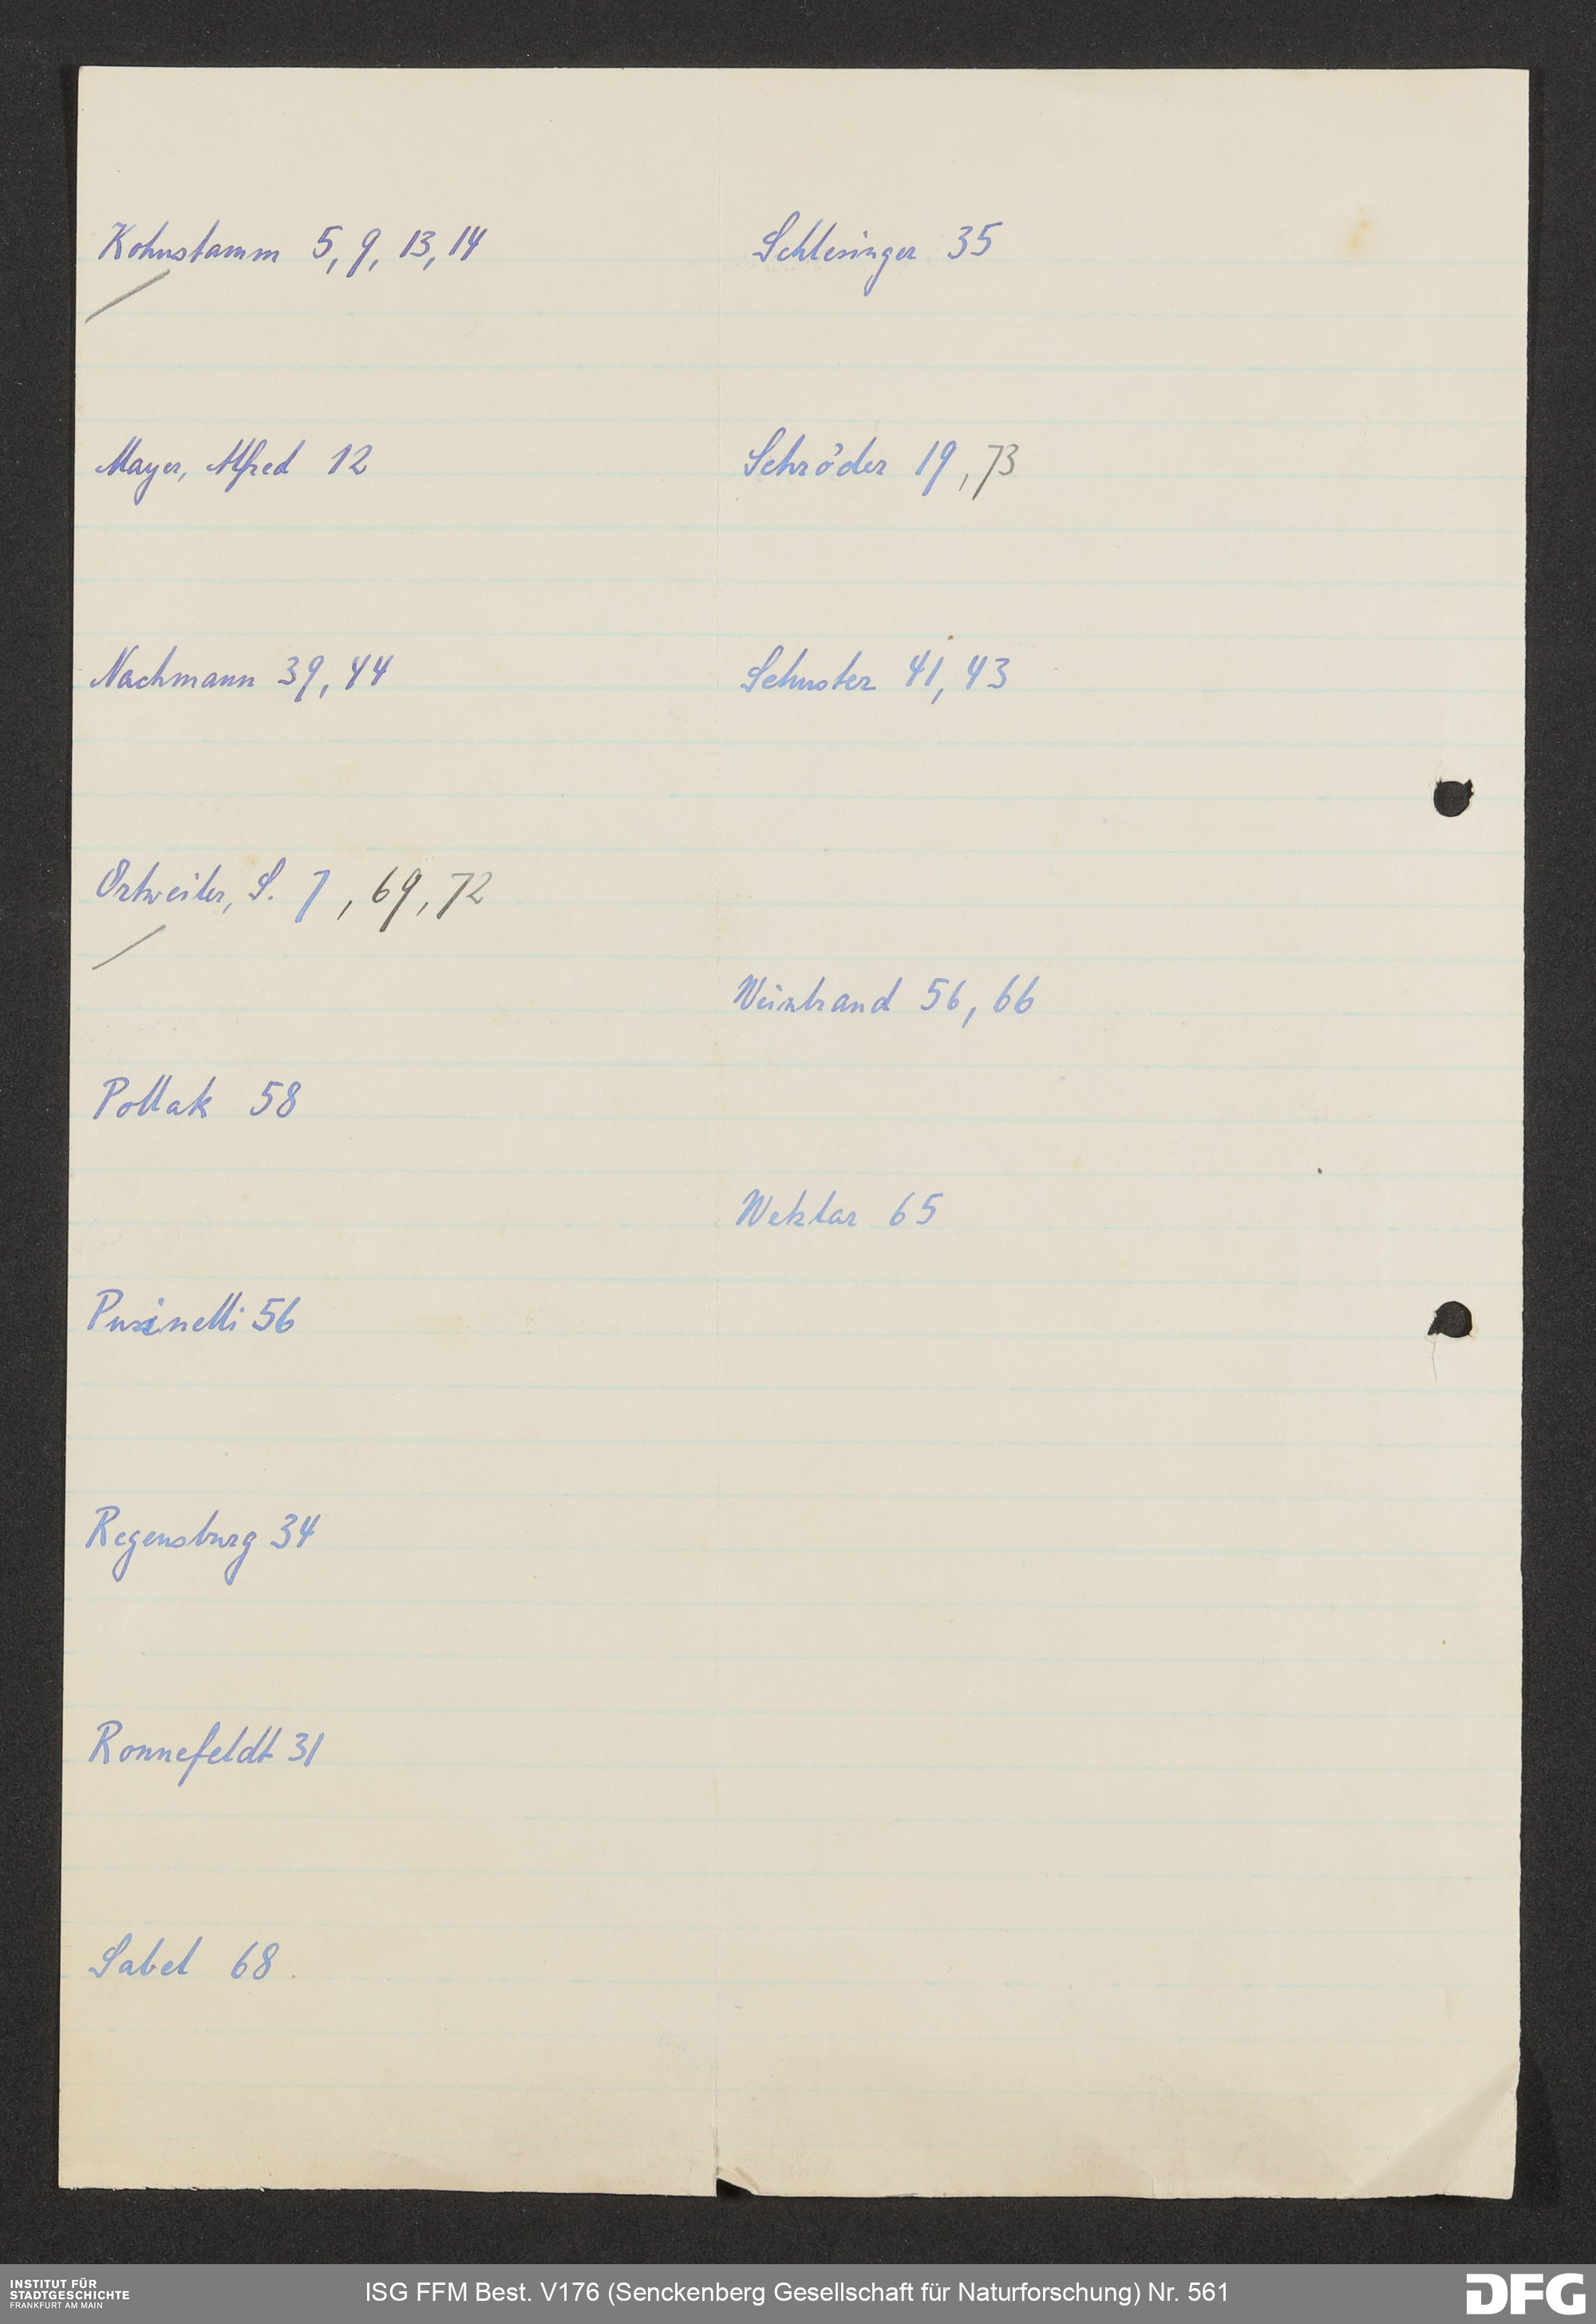 Kohnstamm 5, 9, 13, 14
Mayer, Alfred 12
Nachmann 39, 44
Ortweiler, S. 7, 69, 72
Pollak 58
Pusinelli 56
Regensburg 34
Ronnefeldt 31
Sabel 68
Schlesinger 35
Schröder 19, 73
Schuster 41, 43
Weinbrand 56, 66
Wetzlar 65
INSTITUT FÜR
STADTGESCHICHTE
FRANKFURT AM MAIN
ISG FFM Best. V176 (Senckenberg Gesellschaft für Naturforschung) Nr. 561
DFG